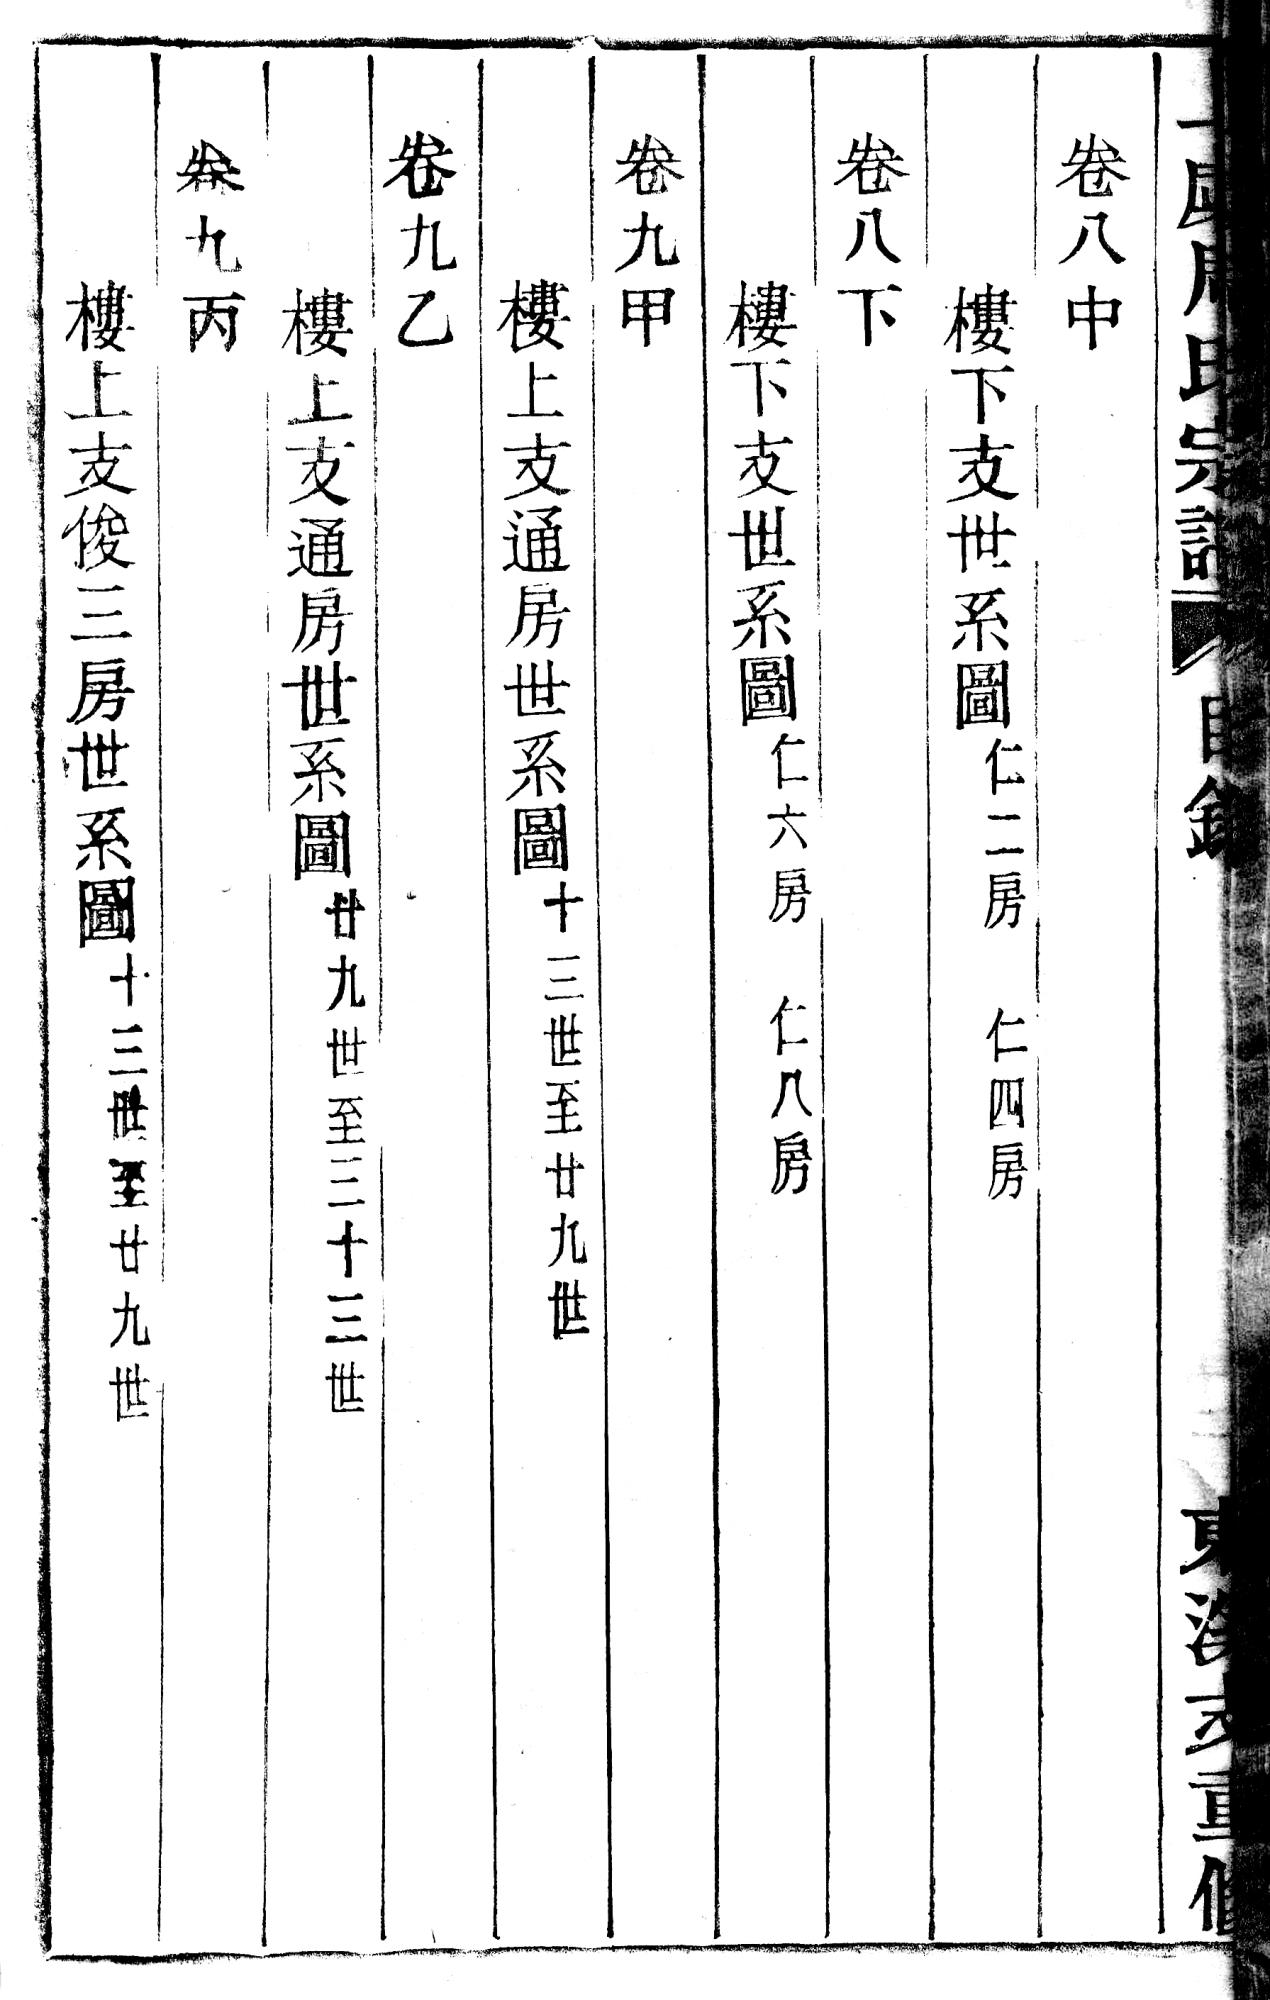 氏宗譜
目錄
東
支重修
卷八中
樓下支世系圖 仁二房 仁四房
卷八下
樓下支世系圖 仁六房 仁八房
卷九甲
樓上支通房世系圖 十三世至廿九世
卷九乙
樓上支通房世系圖 廿九世至三十三世
卷九丙
樓上支俊三房世系圖 十三世至廿九世